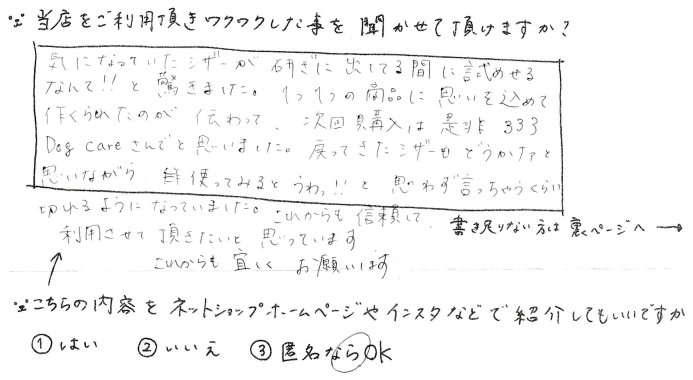 ∵ 当店をご利用頂きワクワクした事を聞かせて頂けますか?
気になっていたシザーが研ぎに出してる間に試めせる
なんて!!と驚きました。1つ1つの商品に思いを込めて
作くられたのが伝わって、次回購入は是非333
Dog careさんでと思いました。戻ってきたシザーもどうかナァと
思いながら 使ってみるとうわっ!!と思わず言っちゃうくらい
切れるようになっていました。これからも信頼して
利用させて頂きたいと思っています
これからも宜しくお願いします
書き足りない方は裏ページへ →
∵ こちらの内容をネットショップホームページやインスタなどで紹介してもいいですか
① はい ② いいえ ③ 匿名ならOK